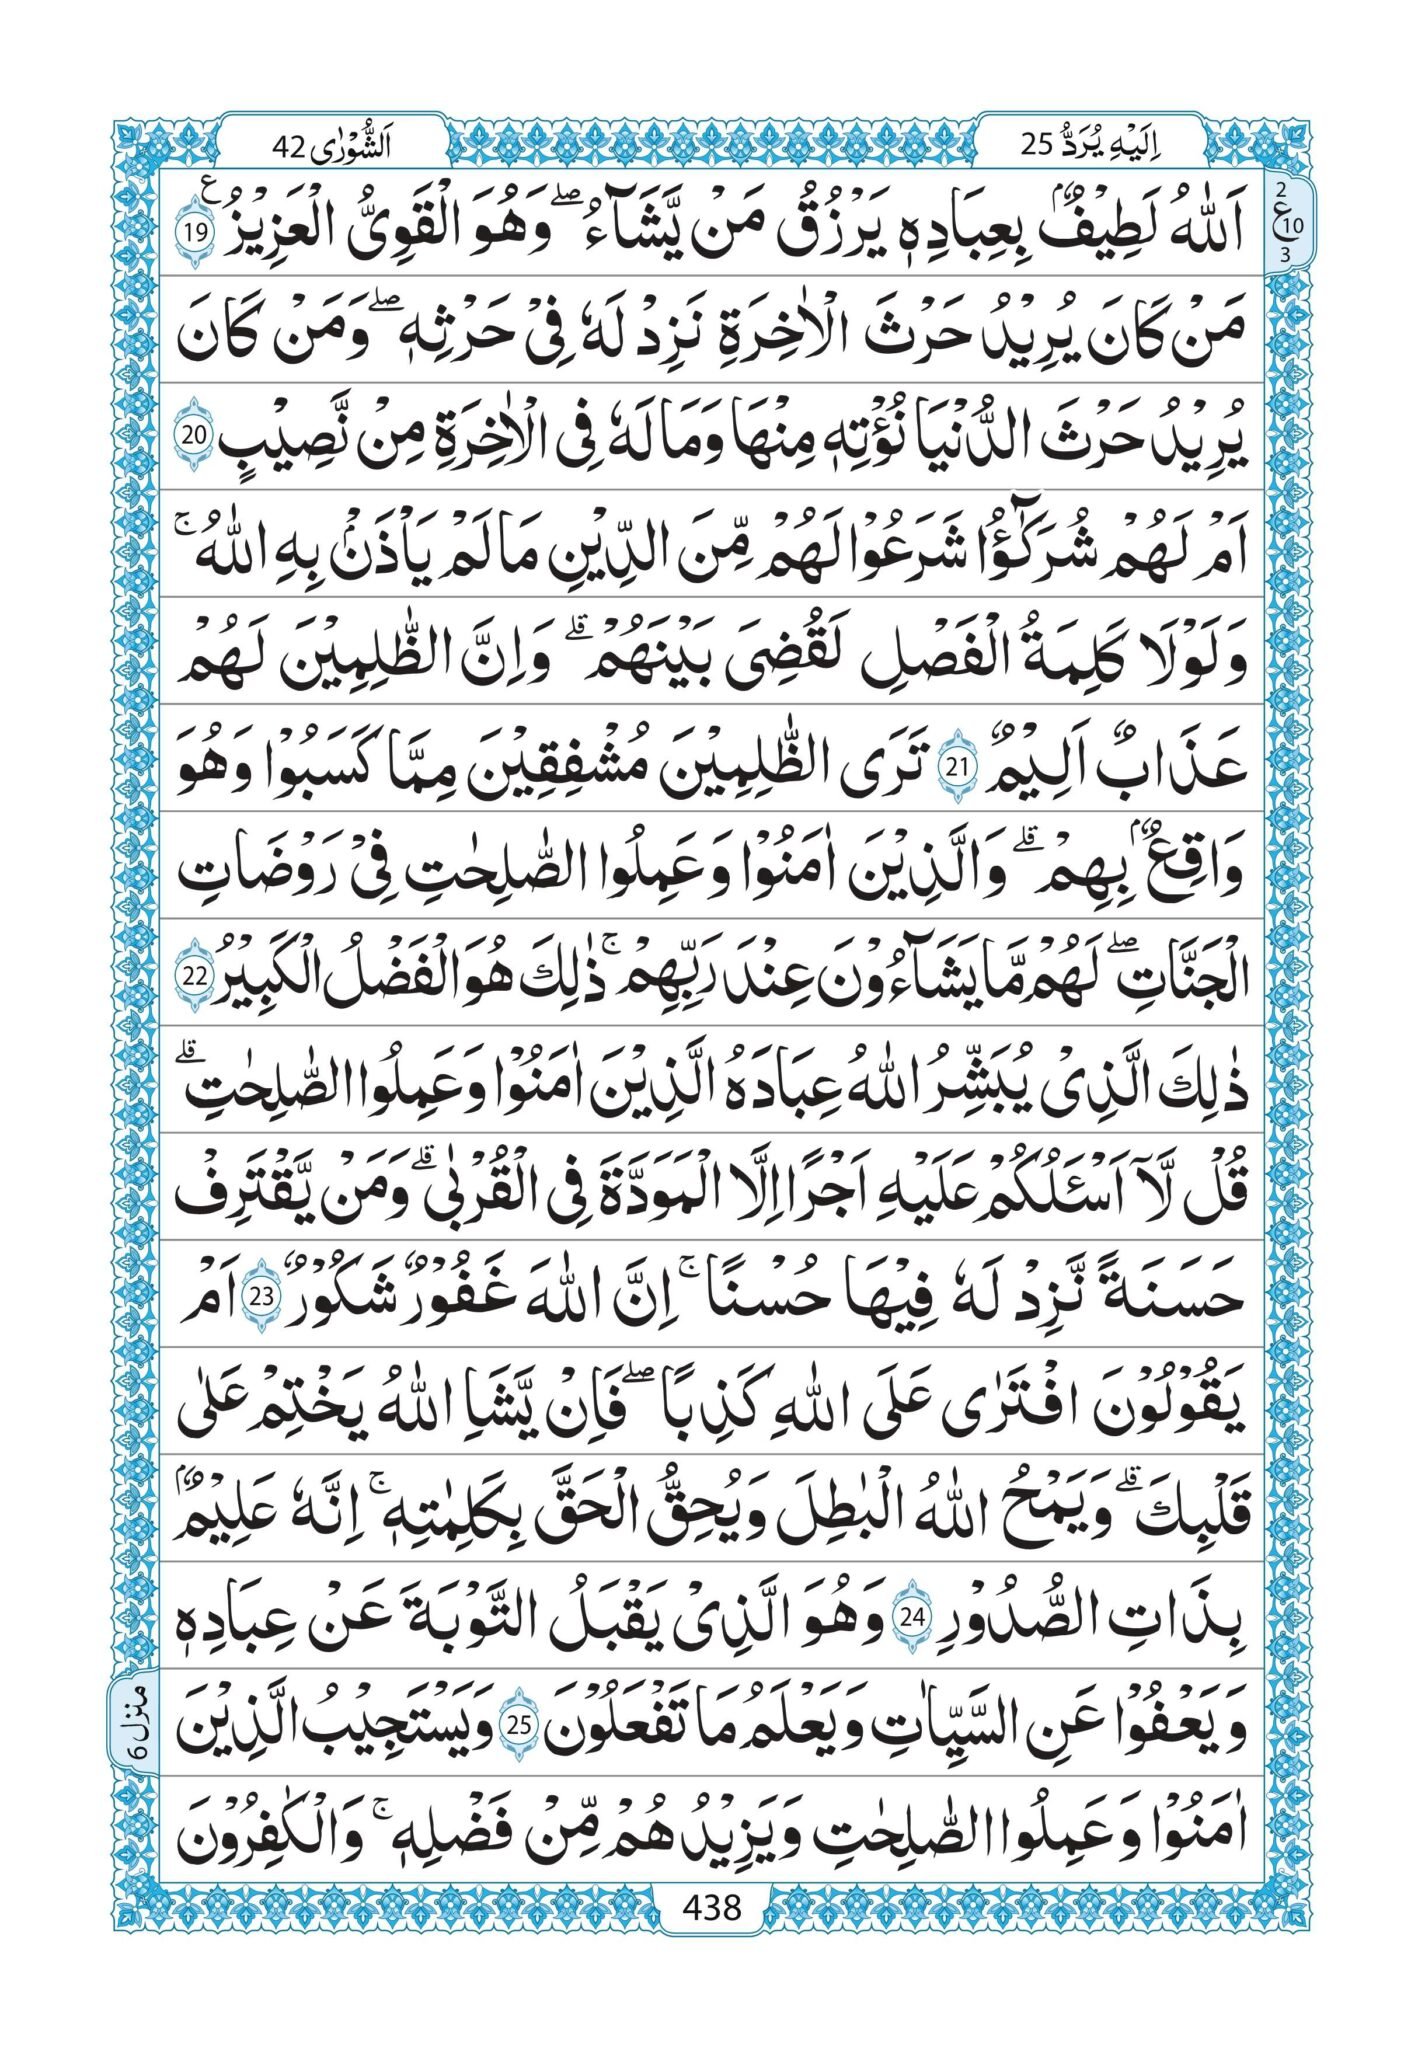 اَلشُّوْرٰى 42
اِلَيْهِ يُرَدُّ 25
2
ع
10
3
اَللّٰهُ لَطِيْفٌۢ بِعِبَادِهٖ يَرْزُقُ مَنْ يَّشَآءُ ۖ وَهُوَ الْقَوِىُّ الْعَزِيْزُ ع 19
مَنْ كَانَ يُرِيْدُ حَرْثَ الْاٰخِرَةِ نَزِدْ لَهٗ فِىْ حَرْثِهٖ ۖ وَمَنْ كَانَ
يُرِيْدُ حَرْثَ الدُّنْيَا نُؤْتِهٖ مِنْهَا وَمَا لَهٗ فِى الْاٰخِرَةِ مِنْ نَّصِيْبٍ 20
اَمْ لَهُمْ شُرَكٰٓؤُا شَرَعُوْا لَهُمْ مِّنَ الدِّيْنِ مَا لَمْ يَاْذَنْۢ بِهِ اللّٰهُ ۚ
وَلَوْلَا كَلِمَةُ الْفَصْلِ لَقُضِىَ بَيْنَهُمْ ۗ وَاِنَّ الظّٰلِمِيْنَ لَهُمْ
عَذَابٌ اَلِيْمٌ 21 تَرَى الظّٰلِمِيْنَ مُشْفِقِيْنَ مِمَّا كَسَبُوْا وَهُوَ
وَاقِعٌۢ بِهِمْ ۗ وَالَّذِيْنَ اٰمَنُوْا وَعَمِلُوا الصّٰلِحٰتِ فِىْ رَوْضَاتِ
الْجَنَّاتِ ۖ لَهُمْ مَّا يَشَآءُوْنَ عِنْدَ رَبِّهِمْ ۚ ذٰلِكَ هُوَ الْفَضْلُ الْكَبِيْرُ 22
ذٰلِكَ الَّذِىْ يُبَشِّرُ اللّٰهُ عِبَادَهُ الَّذِيْنَ اٰمَنُوْا وَعَمِلُوا الصّٰلِحٰتِ ۗ
قُلْ لَّآ اَسْـَٔلُكُمْ عَلَيْهِ اَجْرًا اِلَّا الْمَوَدَّةَ فِى الْقُرْبٰى ۗ وَمَنْ يَّقْتَرِفْ
حَسَنَةً نَّزِدْ لَهٗ فِيْهَا حُسْنًا ۚ اِنَّ اللّٰهَ غَفُوْرٌ شَكُوْرٌ 23 اَمْ
يَقُوْلُوْنَ افْتَرٰى عَلَى اللّٰهِ كَذِبًا ۖ فَاِنْ يَّشَاِ اللّٰهُ يَخْتِمْ عَلٰى
قَلْبِكَ ۗ وَيَمْحُ اللّٰهُ الْبٰطِلَ وَيُحِقُّ الْحَقَّ بِكَلِمٰتِهٖ ۚ اِنَّهٗ عَلِيْمٌۢ
بِذَاتِ الصُّدُوْرِ 24 وَهُوَ الَّذِىْ يَقْبَلُ التَّوْبَةَ عَنْ عِبَادِهٖ
وَيَعْفُوْا عَنِ السَّيِّاٰتِ وَيَعْلَمُ مَا تَفْعَلُوْنَ 25 وَيَسْتَجِيْبُ الَّذِيْنَ
اٰمَنُوْا وَعَمِلُوا الصّٰلِحٰتِ وَيَزِيْدُهُمْ مِّنْ فَضْلِهٖ ۚ وَالْكٰفِرُوْنَ
منزل 6
438